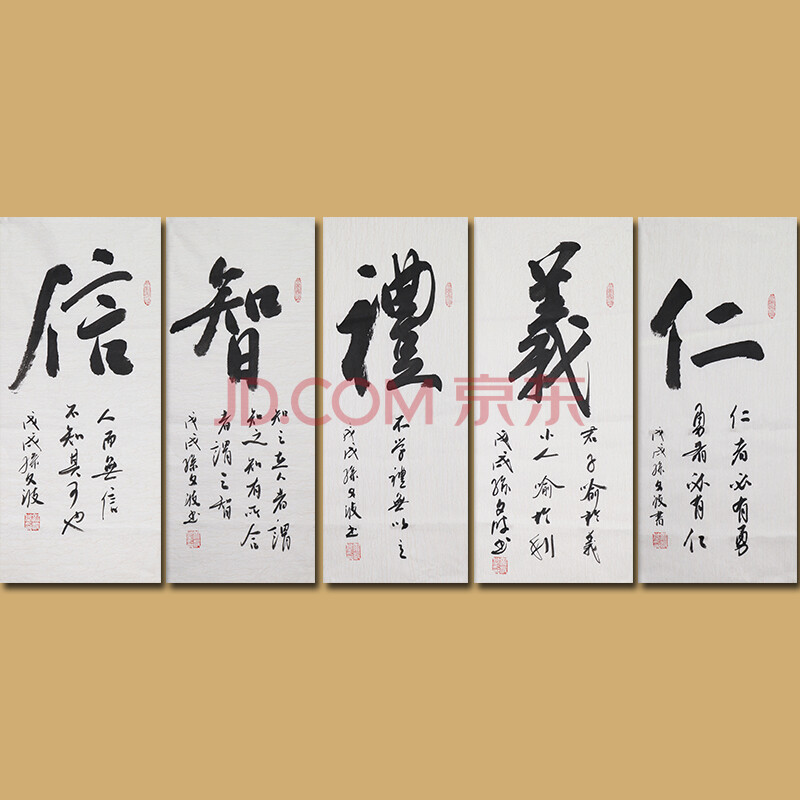 仁
仁者必有勇
勇者必有仁
戊戌孫文波書
義
君子喻於義
小人喻於利
戊戌孫文波书
禮
不学禮無以立
戊戌孫文波书
智
智之在人者謂
知之知有所合
者謂之智
戊戌孫文波书
信
人而無信
不知其可也
戊戌孫文波
JD.COM 京东